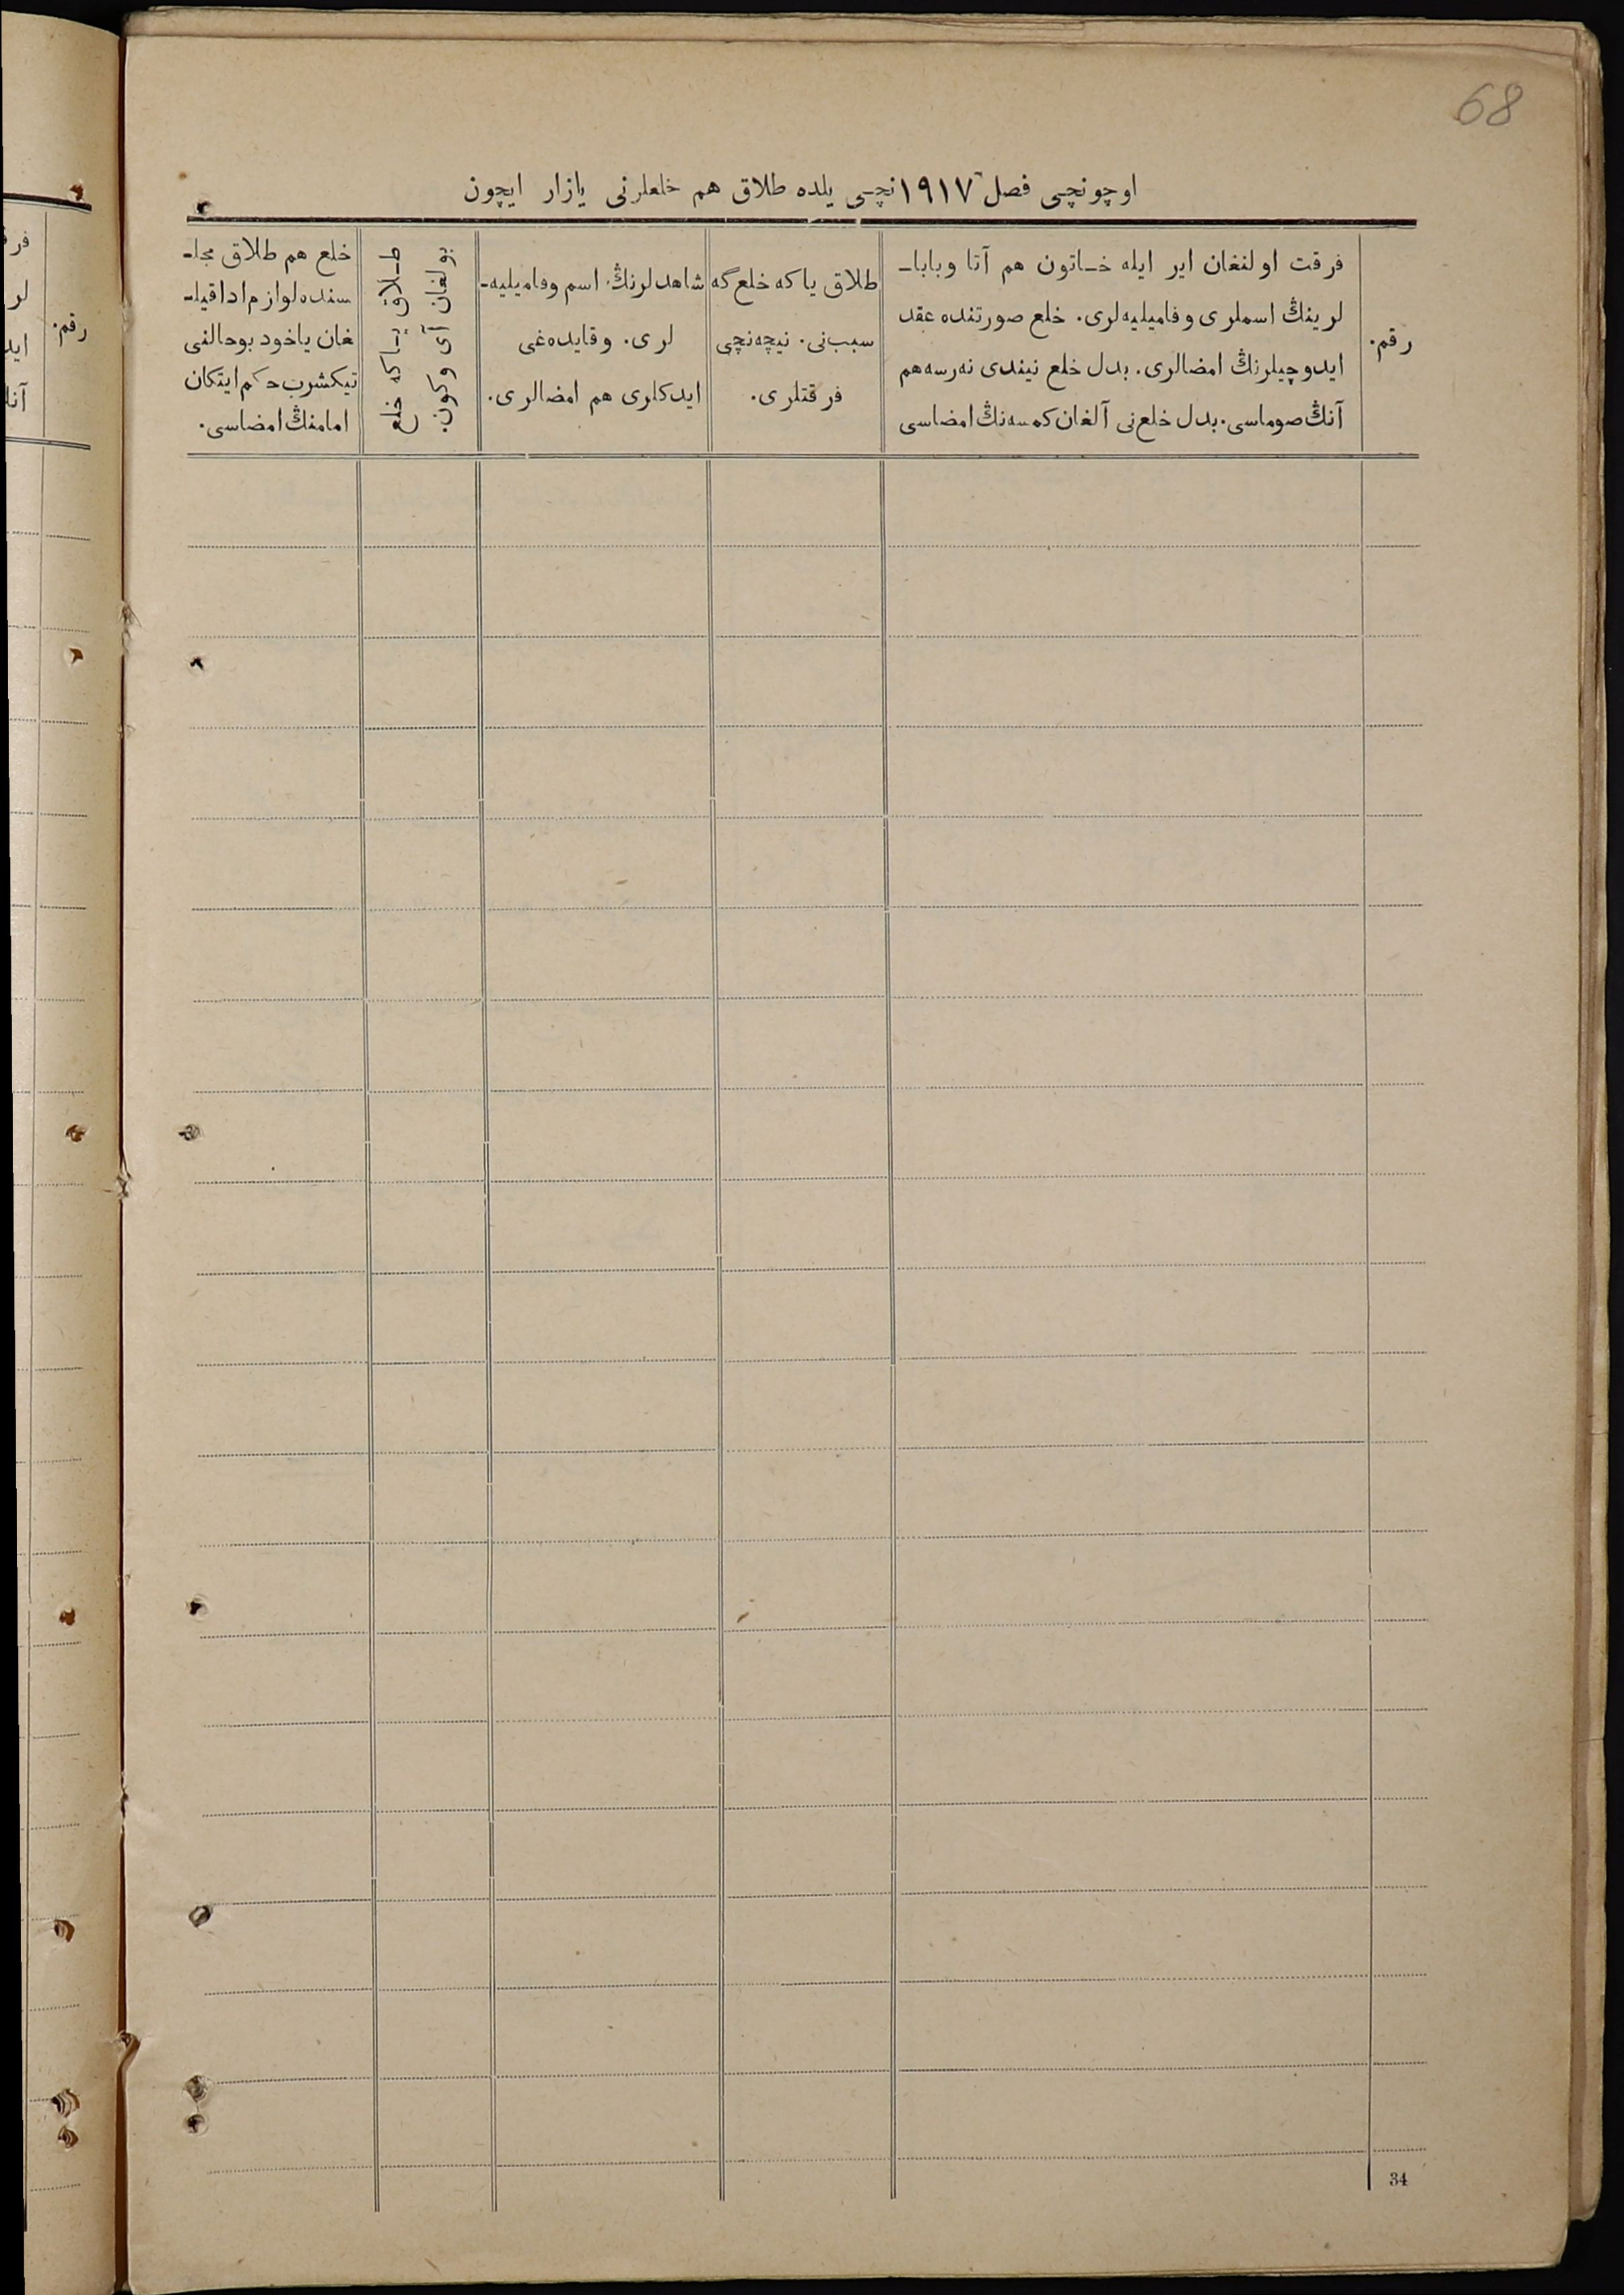 68
اوچونچی فصل ۱۹۱۷نچی یلده طلاق هم خلعلرنی یازار ایچون
رقم.
فرقت اولنغان ایر ایله خاتون هم آتا وبابا-
لرینڭ اسملری وفامیلیه‌لری. خلع صورتنده عقد
ایدوچیلرنڭ امضالری. بدل خلع نیندی نه‌رسه هم
آنڭ صوماسی. بدل خلع‌نی آلغان کمسه‌نڭ امضاسی
طلاق یاکه خلع‌گه
سبب‌نی. نیچه‌نچی
فرقتلری.
شاهدلرنڭ اسم وفامیلیه-
لری. وقایده‌غی
ایدکلری هم امضالری.
طلاق یاکه خلع
بولغان آی وکون.
خلع هم طلاق مجل-
سنده لوازم ادا قیل-
غان یاخود بوحالنی
تیکشرب حکم ایتکان
امامنڭ امضاسی.
34
رقم.
فر
لر
اید
آنڭ